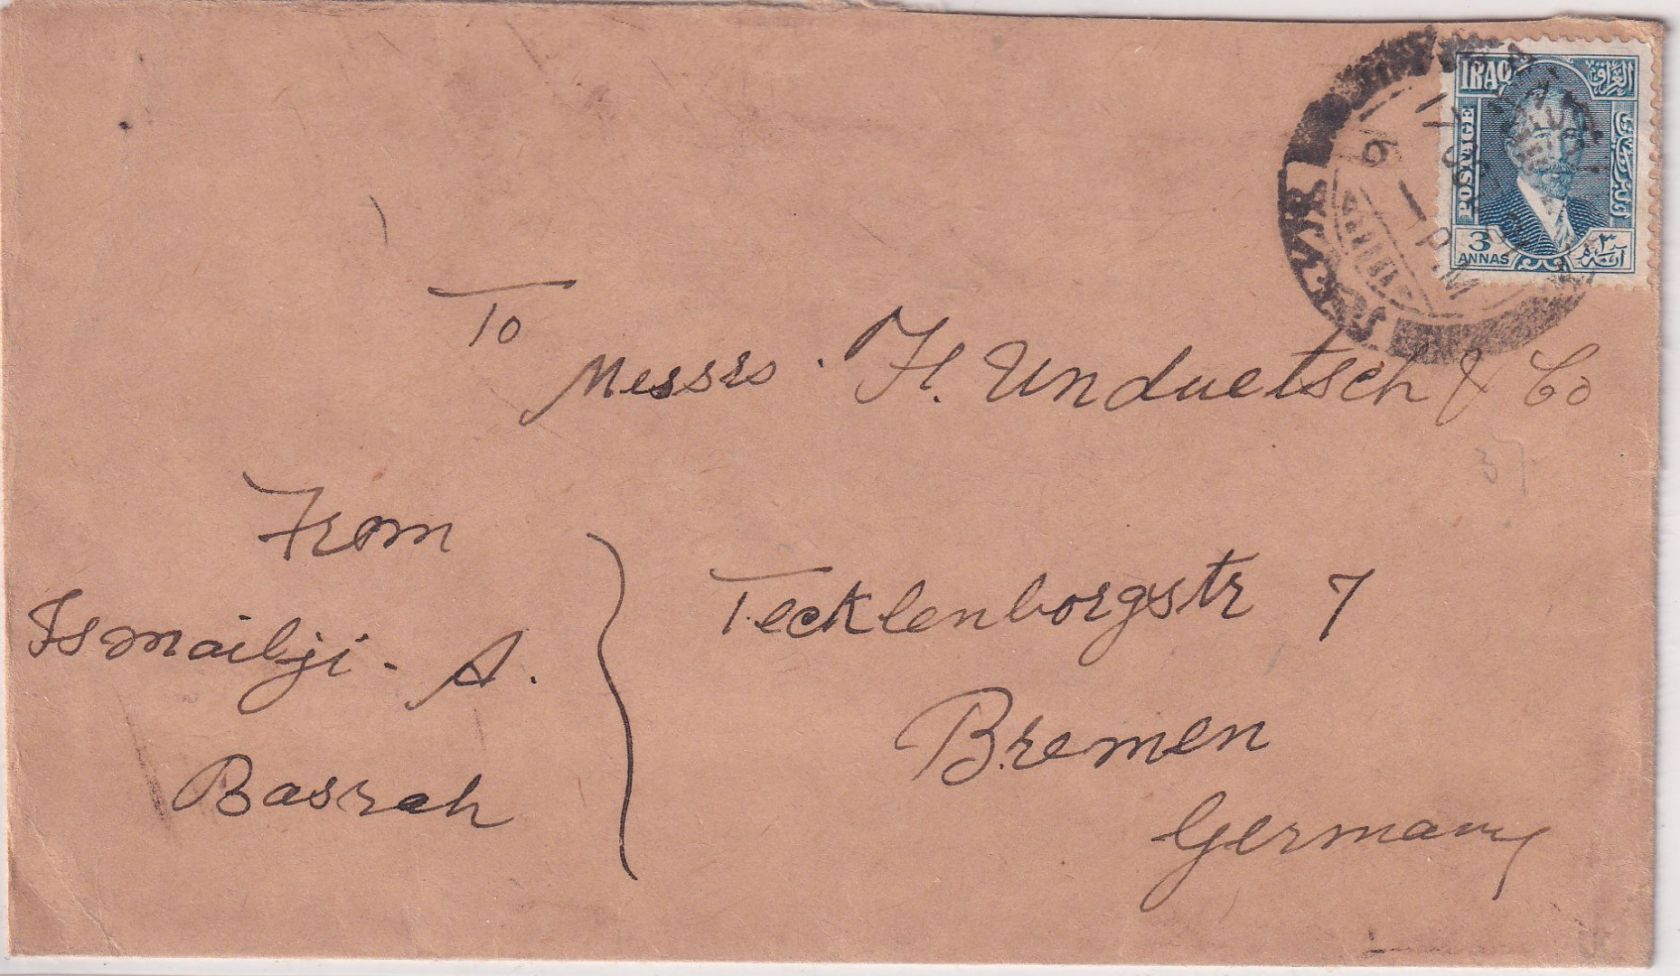 IRAQ
العراق
POSTAGE
3
ANNAS
٣
PM
To
Messrs. H. Unduetsch & Co
37
From
Ismailji. A.
Basrah
Tecklenborgstr 7
Bremen
Germany